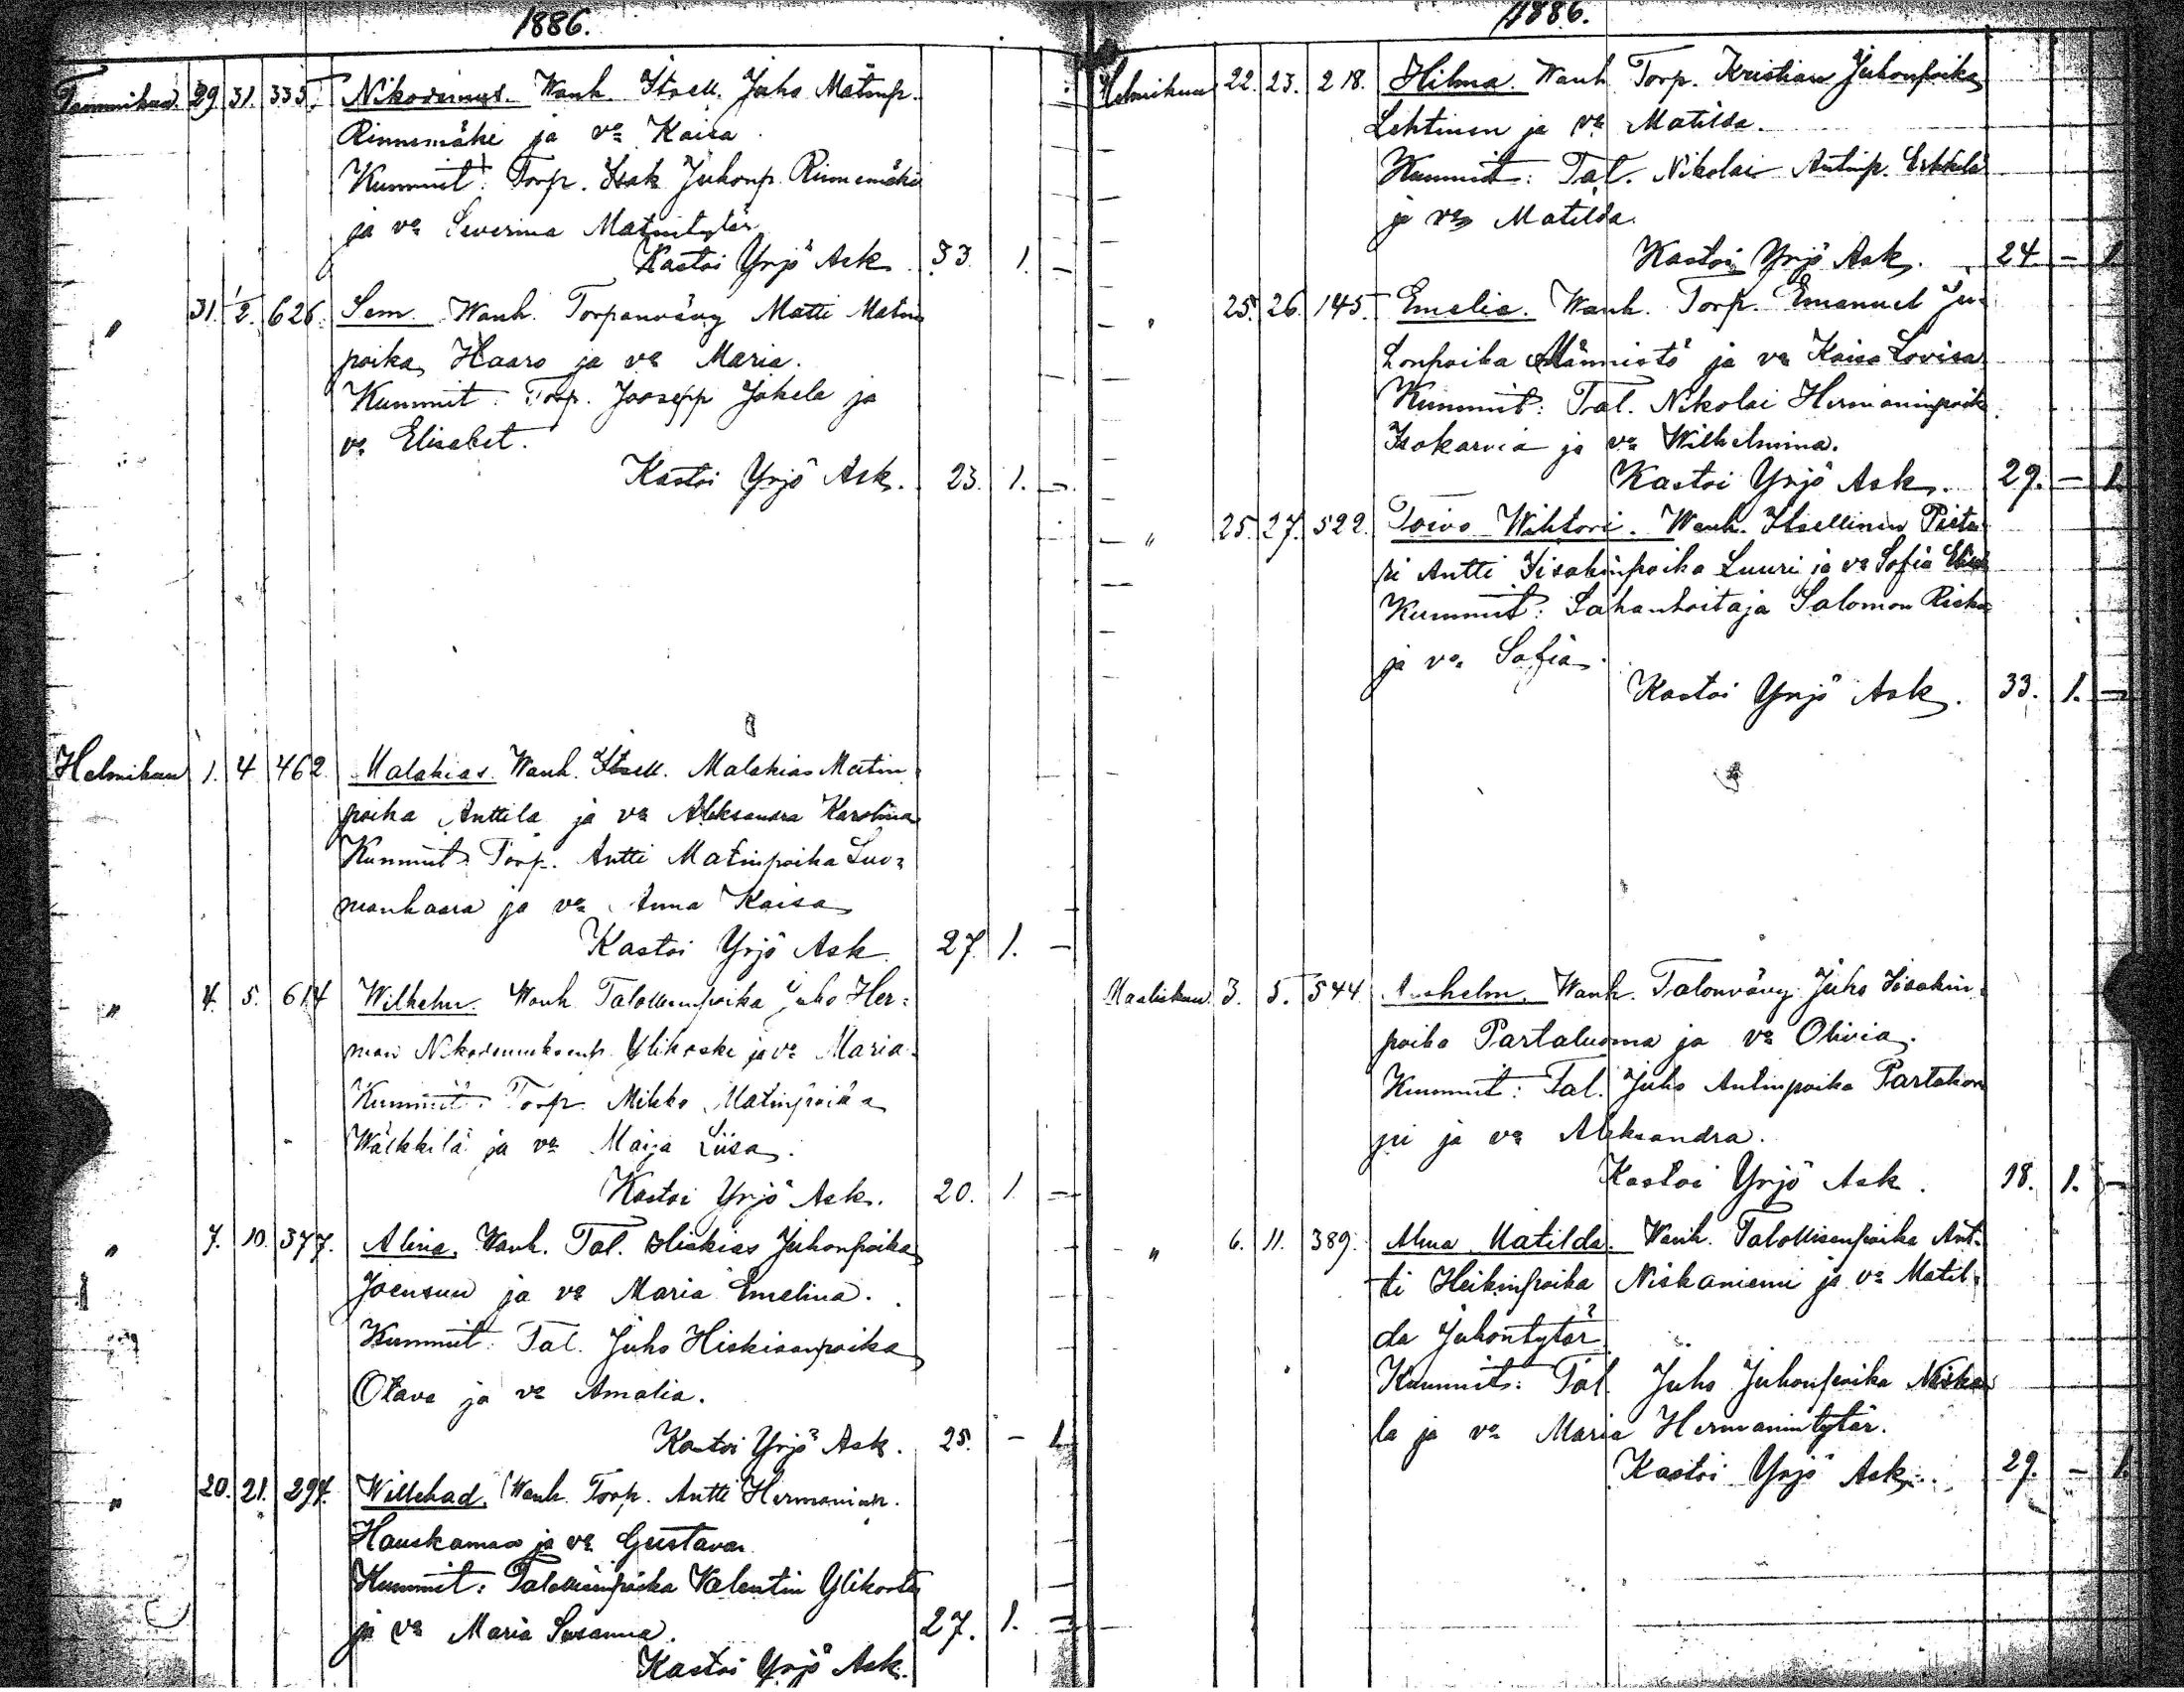 1886.
Tammikuu 29 31. 335. Nikodemus. Wanh. Itsell. Juho Matinp.
Rinnemäki ja vo Kaisa
Kummit: Torp. Isak Juhonp. Rinnemäki
ja vo Severina Matintytär
Kastoi Yrjö Ask. 33 1. –
" 31. 1/2. 626. Sem Wanh. Torpanväug Matti Matin
poika Haaro ja vo Maria.
Kummit: Torp. Joosepp Jokela ja
vo Elisabet.
Kastoi Yrjö Ask. 23. 1. –
Helmikuu 1. 4 462 Malakias. Wanh. Itsell. Malakias Matin
poika Anttila ja vo Aleksandra Karolina
Kummit: Torp. Antti Matinpoika Luo=
manhaara ja vo Anna Kaisa
Kastoi Yrjö Ask 27. 1. –
" 4. 5. 614 Wilhelm. Wanh Talollisenpoika Juho Her=
man Ylikoski ja vo Maria
Kummit: Torp. Mikko Matinpoika
Wälkkilä ja vo Maija Liisa.
Kastoi Yrjö Ask. 20. 1 –
" 7. 10. 377. Alina. Wanh. Tal. Hiskias Juhonpoika
Joensuu ja vo Maria Emelina.
Kummit: Tal. Juho Hiskiaanpoika
Otava ja vo Amalia.
Kastoi Yrjö Ask. 25. – 1
" 20. 21. 294. Willehad. Wanh. Torp. Antti Hermaninp.
Hauskamaa ja vo Gustava
Kummit: Talollisenpoika Valentin Ylikoski
ja vo Maria Susanna.
Kastoi Yrjö Ask. 27. 1. –
1886.
Helmikuu 22. 23. 218. Hilma. Wanh Torp. Kristian Juhonpoika
Lehtinen ja vo Matilda.
Kummit: Tal. Nikolai Antinp. Erkkilä
ja vo Matilda.
Kastoi Yrjö Ask. 24. – 1
" 25. 26. 145. Emelia. Wanh. Torp. Emanuel Ju=
honpoika Männistö ja vo Kaisa Lovisa
Kummit: Tal. Nikolai Hermaninpoik
Isokarvia ja vo Wilhelmina.
Kastoi Yrjö Ask. 29. – 1.
" 25. 27. 522. Toivo Wihtori. Wanh. Itsellinen Pelta
ri Antti Iisakinpoika Luuri ja vo Sofia
Kummit: Sahanhoitaja Salomon
ja vo Sofia.
Kastoi Yrjö Ask. 33. 1. –
Maaliskuu 3. 5. 544 Anshelm. Wanh. Talonväug Juho Iisakin
poika Partaluoma ja vo Olivia.
Kummit: Tal. Juho Antinpoika
pi ja vo Aleksandra.
Kastoi Yrjö Ask. 18. 1. –
" 6. 11. 389. Alma Matilda. Wanh. Talollisenpoika Ant=
ti Heikinpoika Niskaniemi ja vo Matil=
da Juhontytär
Kummit: Tal. Juho Juhonpoika Niska
la ja vo Maria Hermanintytär.
Kastoi Yrjö Ask. 29. – 1.